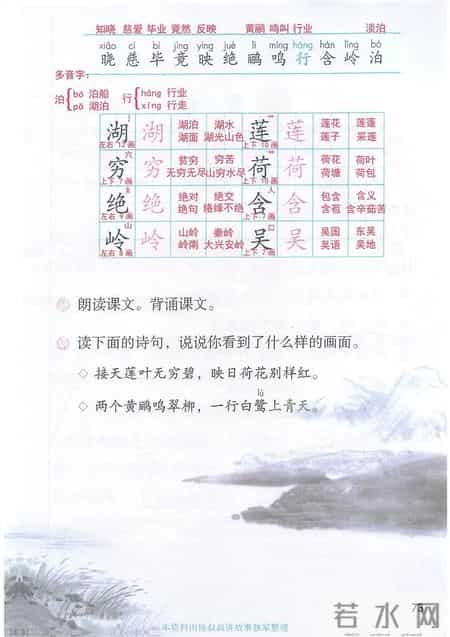 知晓 慈爱 毕业 竟然 反映 黄鹂 鸣叫 行业 淡泊
xiǎo cí bì jìng yìng jué lí míng háng hán lǐng bó
晓 慈 毕 竟 映 绝 鹂 鸣 行 含 岭 泊
多音字：
泊 bó 泊船 行 háng 行业
pō 湖泊 xíng 行走
湖 湖 湖泊 湖水 莲 莲 莲花 莲蓬
左右 12画 湖面 湖光山色 上下 10画 莲子 采莲
穷 穷 贫穷 穷苦 荷 荷 荷花 荷叶
上下 7画 无穷无尽 山穷水尽 上下 10画 荷塘 荷包
绝 绝 绝对 绝交 含 含 包含 含义
左右 9画 绝句 络绎不绝 上下 7画 含苞 含辛茹苦
岭 岭 山岭 秦岭 吴 吴 吴国 东吴
左右 8画 岭南 大兴安岭 上下 7画 吴语 吴地
朗读课文。背诵课文。
读下面的诗句，说说你看到了什么样的画面。
◇ 接天莲叶无穷碧，映日荷花别样红。
lù
◇ 两个黄鹂鸣翠柳，一行白鹭上青天。
若水网